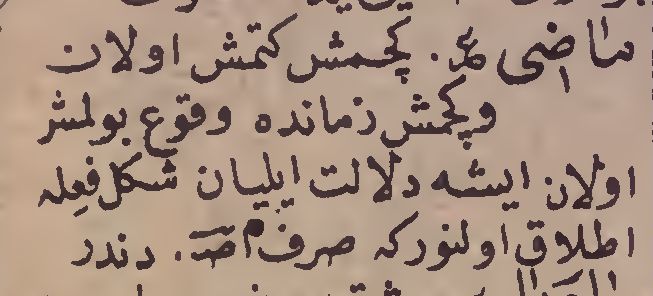 ماضی عر. کچمش کتمش اولان
وکچمش زمانده وقوع بولمش
اولان ایشه دلالت ایلیان شکل فعله
اطلاق اولنورکه صرف اصـ. دندر